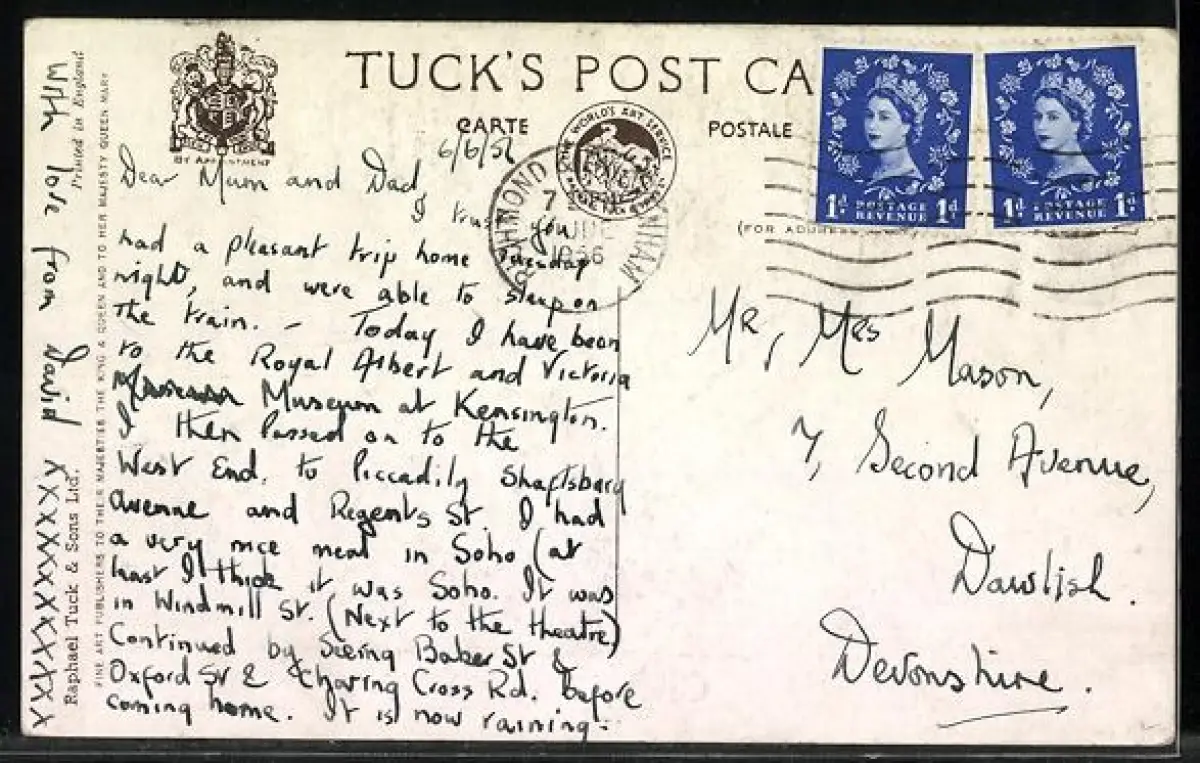 TUCK'S POST CA
CARTE POSTALE
BY APPOINTMENT
THE WORLD'S ART SERVICE
(FOR ADDRESS
RICHMOND
7
JUN
1956
1d. POSTAGE REVENUE 1d.
1d. POSTAGE REVENUE 1d.
6/6/56
Dear Mum and Dad,
I trust you
had a pleasant trip home Tuesday
night, and were able to sleep on
the train. – Today I have been
to the Royal Albert and Victoria
Museum at Kensington.
I then passed on to the
West End. to Piccadily Shaftsbury
Avenue and Regents St. I had
a very nice meal in Soho (at
least I think it was Soho. It was
in Windmill St. (Next to the theatre)
Continued by Seeing Baker St &
Oxford St & Charing Cross Rd. before
coming home. It is now raining.
With love from David XXXXXXXXXXX
Printed in England
Raphael Tuck & Sons Ltd.
FINE ART PUBLISHERS TO THEIR MAJESTIES THE KING & QUEEN AND TO HER MAJESTY QUEEN MARY
Mr, Mrs Mason,
7, Second Avenue,
Dawlish.
Devonshire.